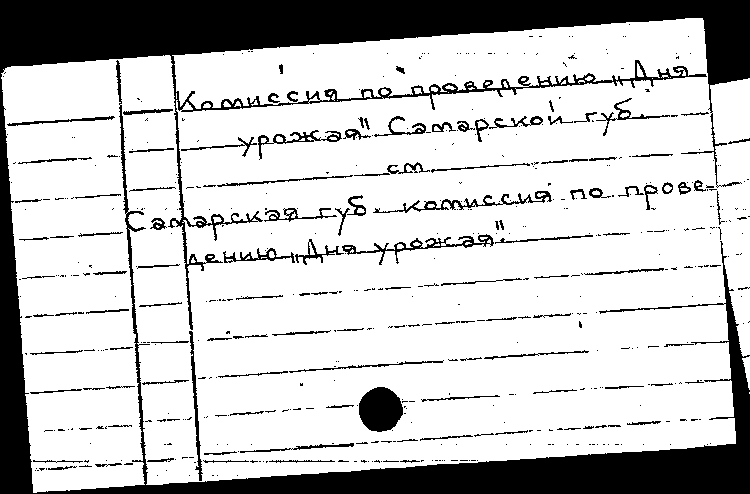 Комиссия по проведению „Дня
урожая" Самарской губ.
см.
Самарская губ. комиссия по прове-
дению „Дня урожая".